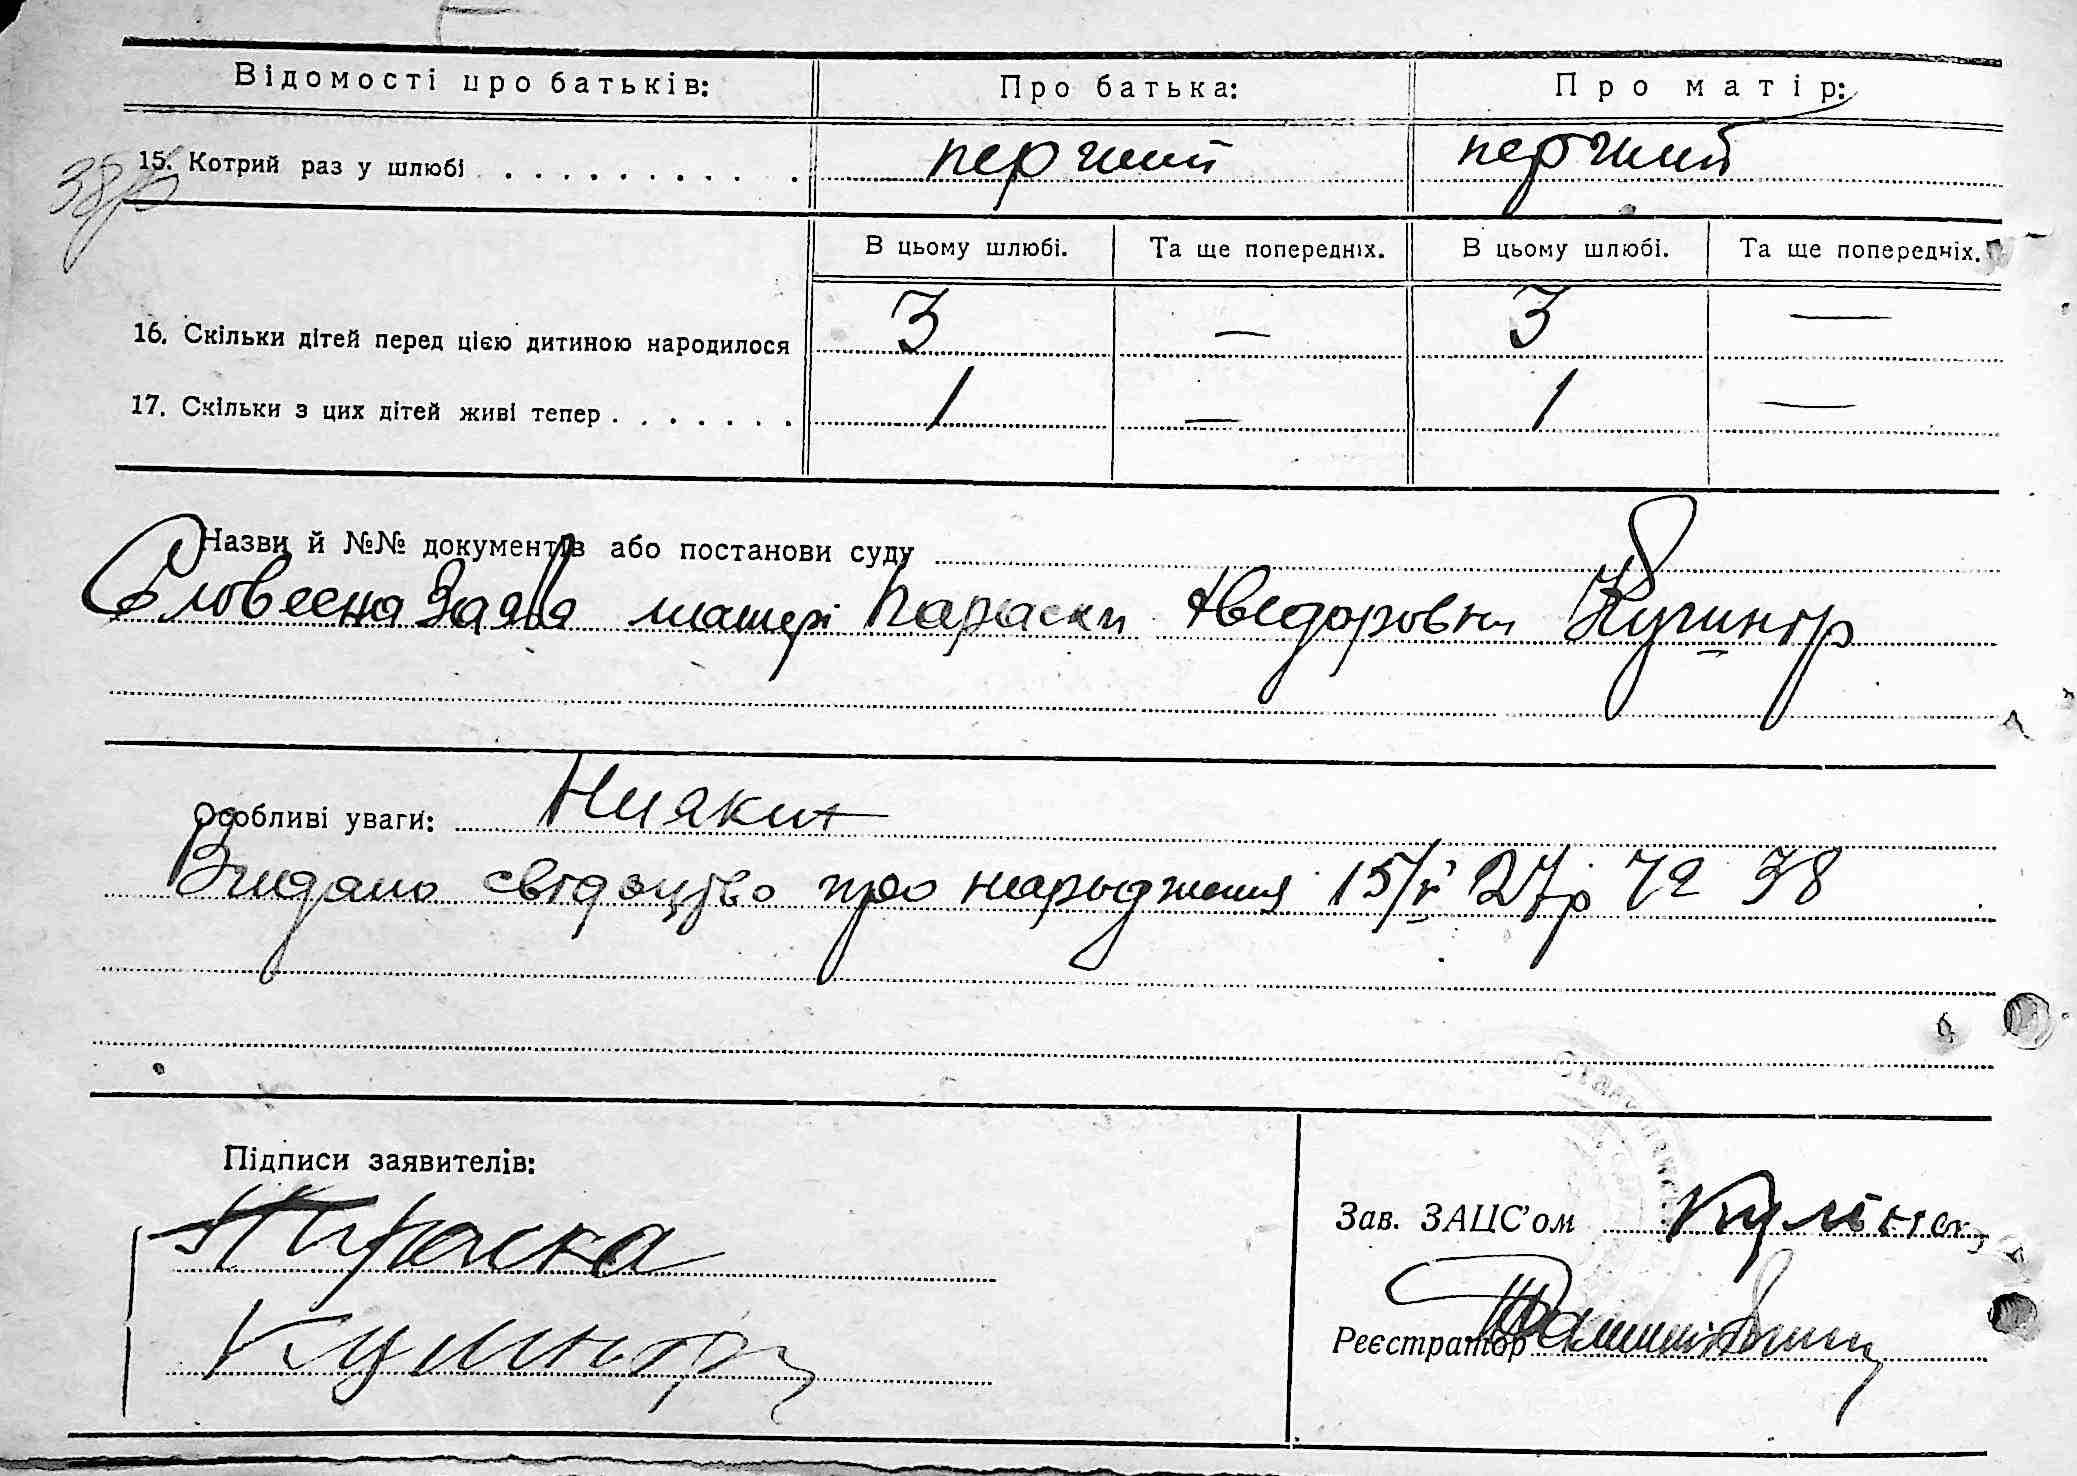 Відомості про батьків: Про батька: Про матір:
38р
15. Котрий раз у шлюбі . . . . . . . . . . . перший перший
В цьому шлюбі. Та ще попередніх. В цьому шлюбі. Та ще попередніх.
16. Скільки дітей перед цією дитиною народилося 3 — 3 —
17. Скільки з цих дітей живі тепер . . . . . . . 1 — 1 —
Назви й №№ документів або постанови суду
Словесна заява матері Параски Хведоровни
Особливі уваги: Нияких
Видано свідоцтво про народження 15/V 27р № 38
Підписи заявителів:
Параска
Зав. ЗАЦС'ом
Реєстратор